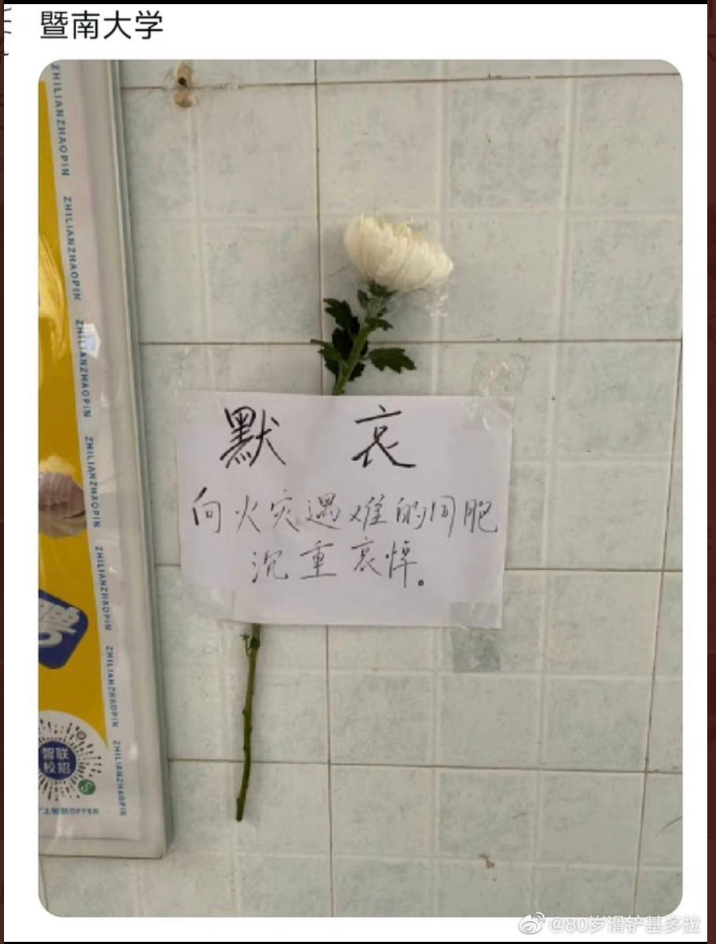 暨南大学
ZHILIANZHAOPIN
ZHILIANZHAOPIN
ZHILIANZHAOPIN
ZHILIANZHAOPIN
ZHILIANZHAOPIN
ZHILIANZHAOPIN
ZHILIANZHAOPIN
聘
智联
校招
默哀
向火灾遇难的同胞
沉重哀悼。
@80岁滑铲基多拉